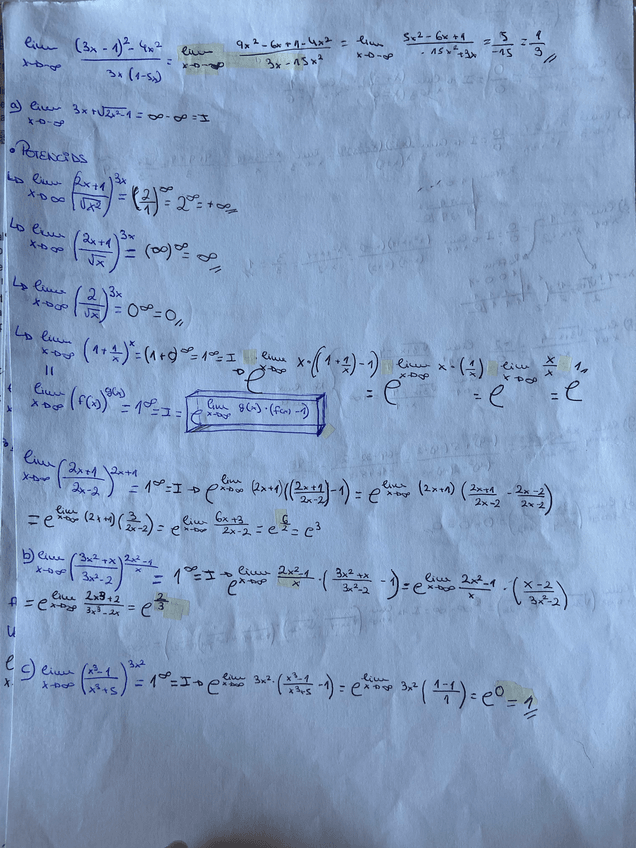 lim x→-∞ (3x-1)²-4x² / 3x(1-5x) = lim x→-∞ 9x²-6x+1-4x² / 3x-15x² = lim x→-∞ 5x²-6x+1 / -15x²+3x = 5/-15 = 1/3 //
a) lim x→-∞ 3x+√2x²-1 = ∞-∞ = I
• POTENCIAS
↳ lim x→∞ (2x+1 / √x²)^3x = (2/1)^∞ = 2^∞ = +∞ //
↳ lim x→∞ (2x+1 / √x)^3x = (∞)^∞ = ∞ //
↳ lim x→∞ (2/√x)^3x = 0^∞ = 0 //
↳ lim x→∞ (1+1/x)^x = (1+0)^∞ = 1^∞ = I → e^lim x→∞ x·((1+1/x)-1) = e^lim x→∞ x·(1/x) = e^lim x→∞ x/x = e^1
=
lim x→∞ (f(x))^g(x) = 1^∞ = I = e^lim x→∞ g(x)·(f(x)-1)
lim x→∞ (2x+1 / 2x-2)^2x+1 = 1^∞ = I → e^lim x→∞ (2x+1)((2x+1 / 2x-2)-1) = e^lim x→∞ (2x+1)(2x+1 / 2x-2 - 2x-2 / 2x-2)
= e^lim x→∞ (2x+1)(3 / 2x-2) = e^lim x→∞ 6x+3 / 2x-2 = e^6/2 = e^3
b) lim x→∞ (3x²+x / 3x²-2)^2x²-1 / x = 1^∞ = I → e^lim x→∞ 2x²-1 / x · (3x²+x / 3x²-2 - 1) = e^lim x→∞ 2x²-1 / x · (x-2 / 3x²-2)
= e^lim x→∞ 2x³+2 / 3x³-2x = e^2/3
c) lim x→∞ (x³-1 / x³+5)^3x² = 1^∞ = I → e^lim x→∞ 3x²·(x³-1 / x³+5 - 1) = e^lim x→∞ 3x²(1-1 / 1) = e^0 = 1 //